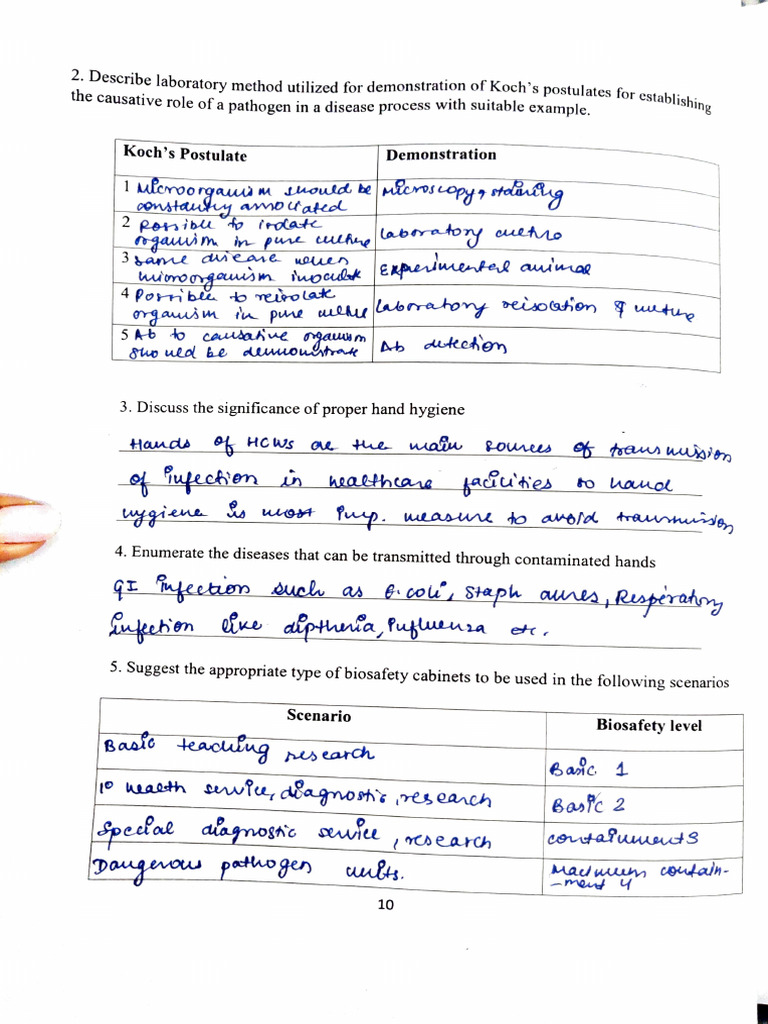 2. Describe laboratory method utilized for demonstration of Koch's postulates for establishing
the causative role of a pathogen in a disease process with suitable example.
Koch's Postulate Demonstration
1 Microorganism should be constantly associated Microscopy, staining
2 Possible to isolate organism in pure culture Laboratory culture
3 same disease when microorganism inoculate Experimental animal
4 Possible to reisolate organism in pure culture Laboratory reisolation & culture
5 Ab to causative organism should be demonstrate Ab detection
3. Discuss the significance of proper hand hygiene
Hands of HCWs are the main sources of transmission
of infection in healthcare facilities so hand
hygiene is most imp. measure to avoid transmission
4. Enumerate the diseases that can be transmitted through contaminated hands
GI infection such as E.coli, Staph aures, Respiratory
infection like diptheria, Influenza etc.
5. Suggest the appropriate type of biosafety cabinets to be used in the following scenarios
Scenario Biosafety level
Basic teaching research Basic 1
1° health service, diagnostic, research Basic 2
Special diagnostic service, research containment 3
Dangerous pathogen units. Maximum contain-
-ment 4
10